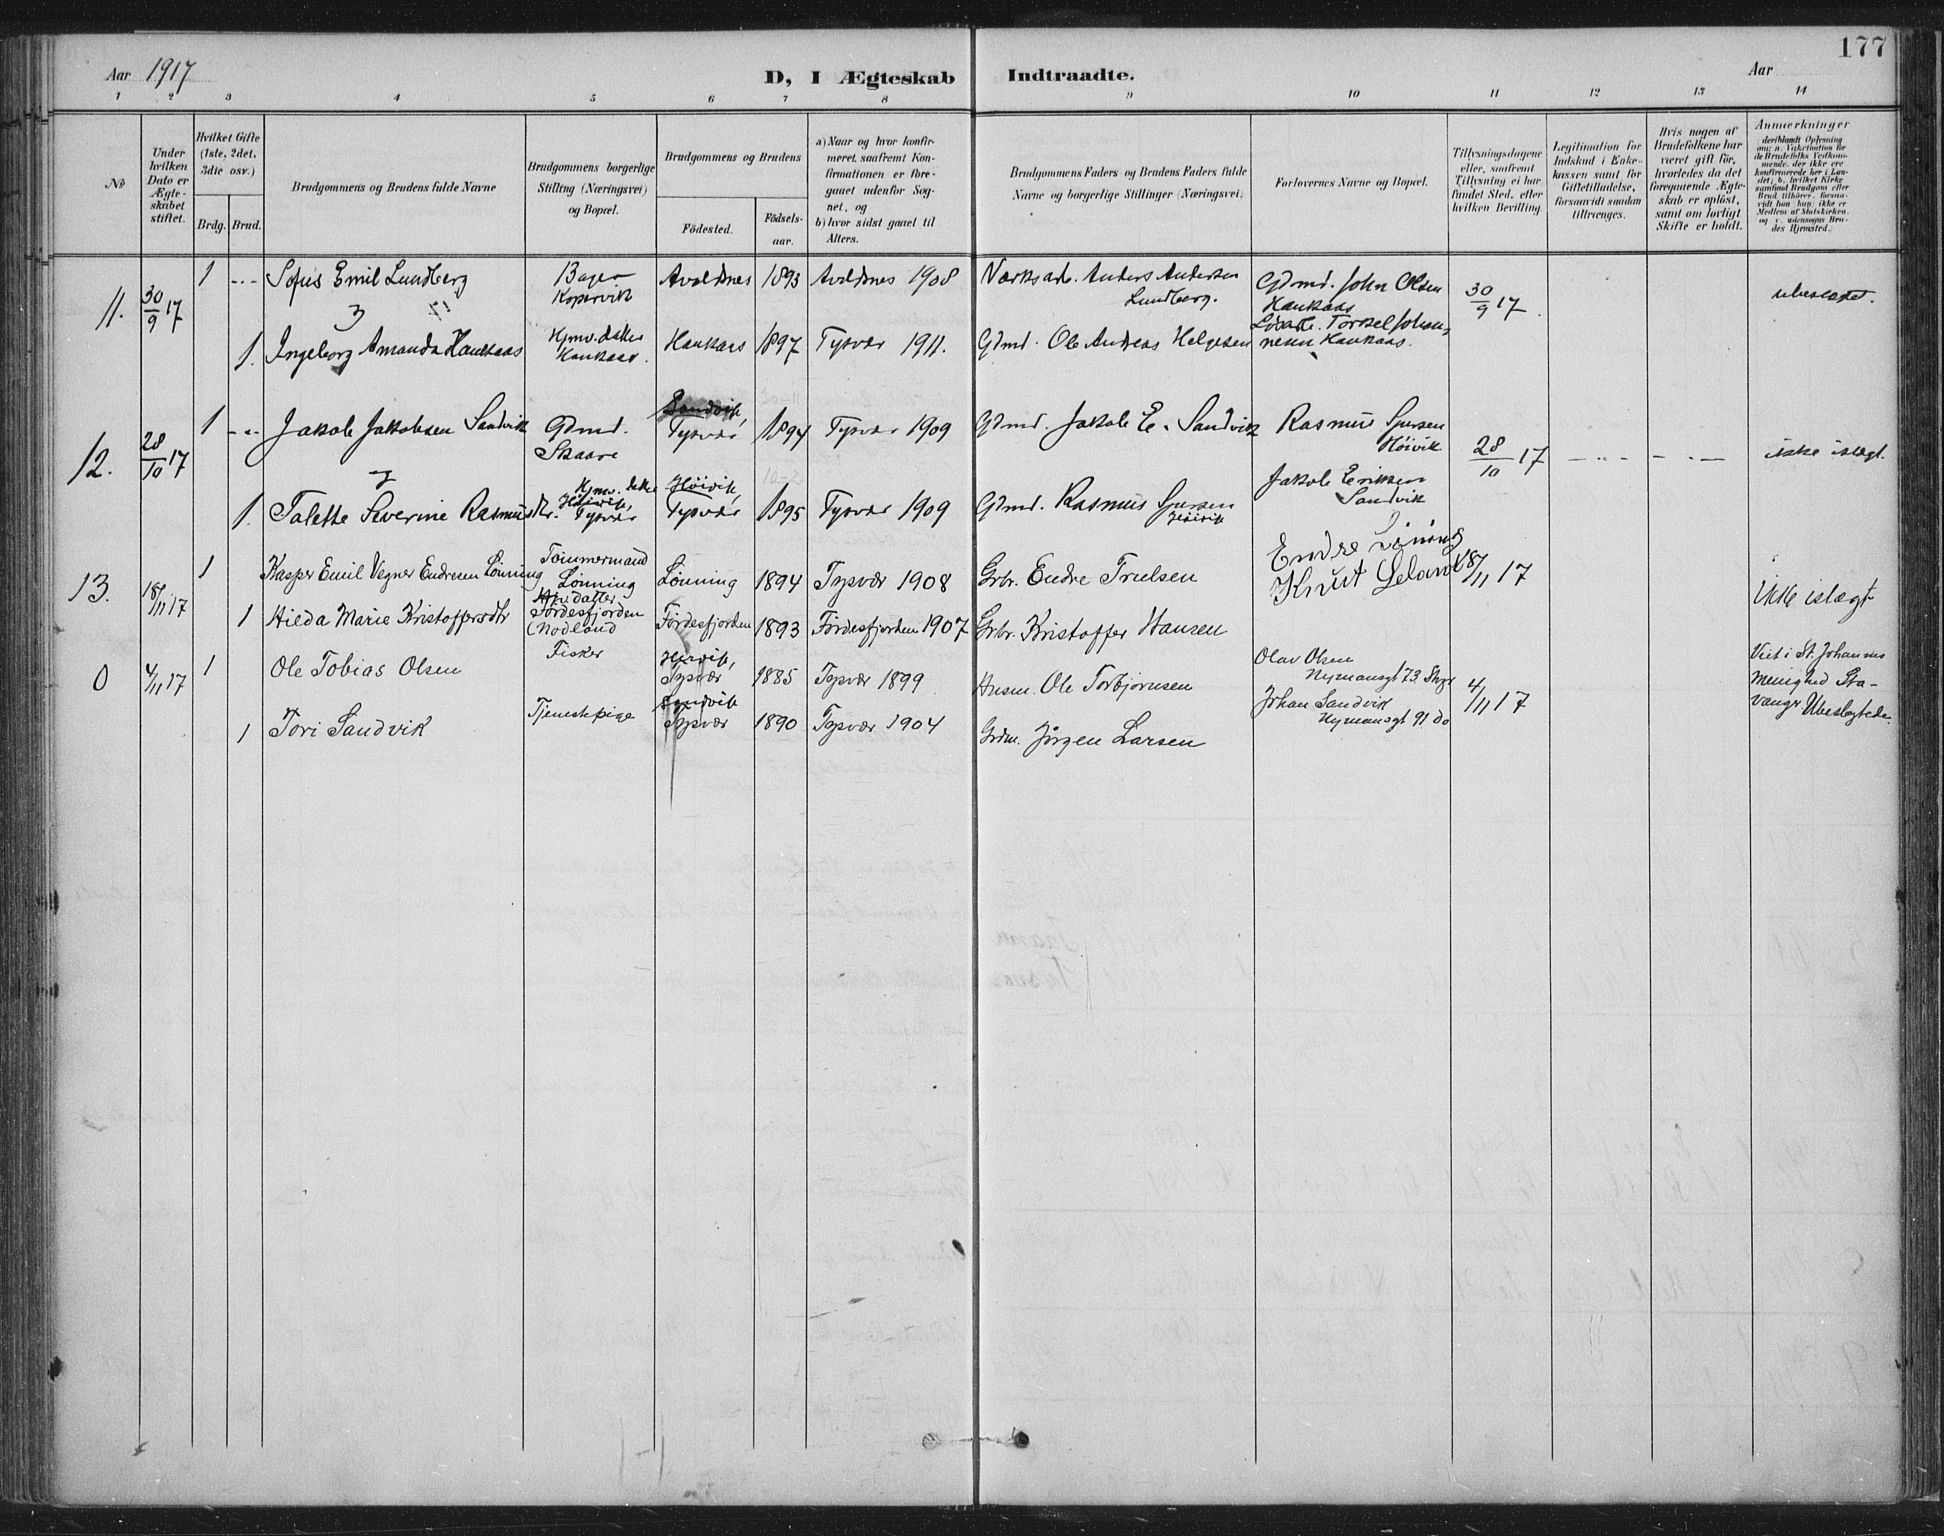 177
Aar 1917 D, I Ægteskab Indtraadte. Aar
1 2 3 4 5 6 7 8 9 10 11 12 13 14
No
Under hvilken Dato er Ægteskabet stiftet.
Hvilket Gifte (1ste, 2det, 3dte osv.)
Brdg. Brud.
Brudgommens og Brudens fulde Navne
Brudgommens borgerlige Stilling (Næringsvei) og Bopæl.
Brudgommens og Brudens
Födested. Födsels-aar.
a) Naar og hvor konfirmeret, saafremt Konfirmationen er foregaaet udenfor Sognet, og
b) hvor sidst gaaet til Alters.
Brudgommens Faders og Brudens Faders fulde Navne og borgerlige Stillinger (Næringsvei)
Forlovernes Navne og Bopæl.
Tillysningsdagene eller, saafremt Tillysning ei har fundet Sted, efter hvilken Bevilling.
Legitimation for Indskud i Enkekassen samt for Giftetilladelse, forsaavidt saadan tiltrænges.
Hvis nogen af Brudefolkene har været gift för, hvorledes da det foregaaende Ægteskab er oplöst, samt om lovligt Skifte er holdt.
Anmerkninger
11. 30/9 17 1 Sofus Emil Lundberg Bager Kopervik Avaldnes 1893 Avaldnes 1908 Anders Andersen Lundberg. Gdmd. John Olsen Haukaas 30/9 17 ubeslægtet.
1. Ingeborg Amanda Haukaas Haukaas. Haukaas 1897 Tysvær 1911. Gdmd. Ole Andreas Helgesen Torkel Johannesen Haukaas.
12. 28/10 17 1 Jakob Jakobsen Sandvik Gdmd. Skaare Sandvik, Tysvær 1894 Tysvær 1909 Gdmd. Jakob E. Sandvik Rasmus Høivik 28/10 17 ikke islægt.
1. Talette Severine Rasmusdtr. Høivik, Tysvær Høivik, Tysvær 1895 Tysvær 1909 Gdmd. Rasmus Høivik Jakob Eriksen Sandvik
13. 18/11 17 1 Kasper Emil Vegner Endresen Lønning Tømmermand Lønning Lønning 1894 Tysvær 1908 Grbr. Endre Trulsen Endre Knut 18/11 17 Ikke islægt
1 Hilda Marie Kristoffersdtr Førdesfjorden (Nodland Førdesfjorden 1893 Førdesfjorden 1907 Grbr. Kristoffer Hansen
0 4/11 17 1 Ole Tobias Olsen Fisker Høivik, Tysvær 1885 Tysvær 1899 Husm. Ole Torbjørnsen Olav Olsen Nymansgt 73. 4/11 17 Viet i St. Johannes menighed Stavanger Ubeslegtede.
1 Tori Sandvik Tjenestepige Sandvik Tysvær 1890 Tysvær 1904 Jørgen Larsen Johan Sandvik Nymansgt 91 do